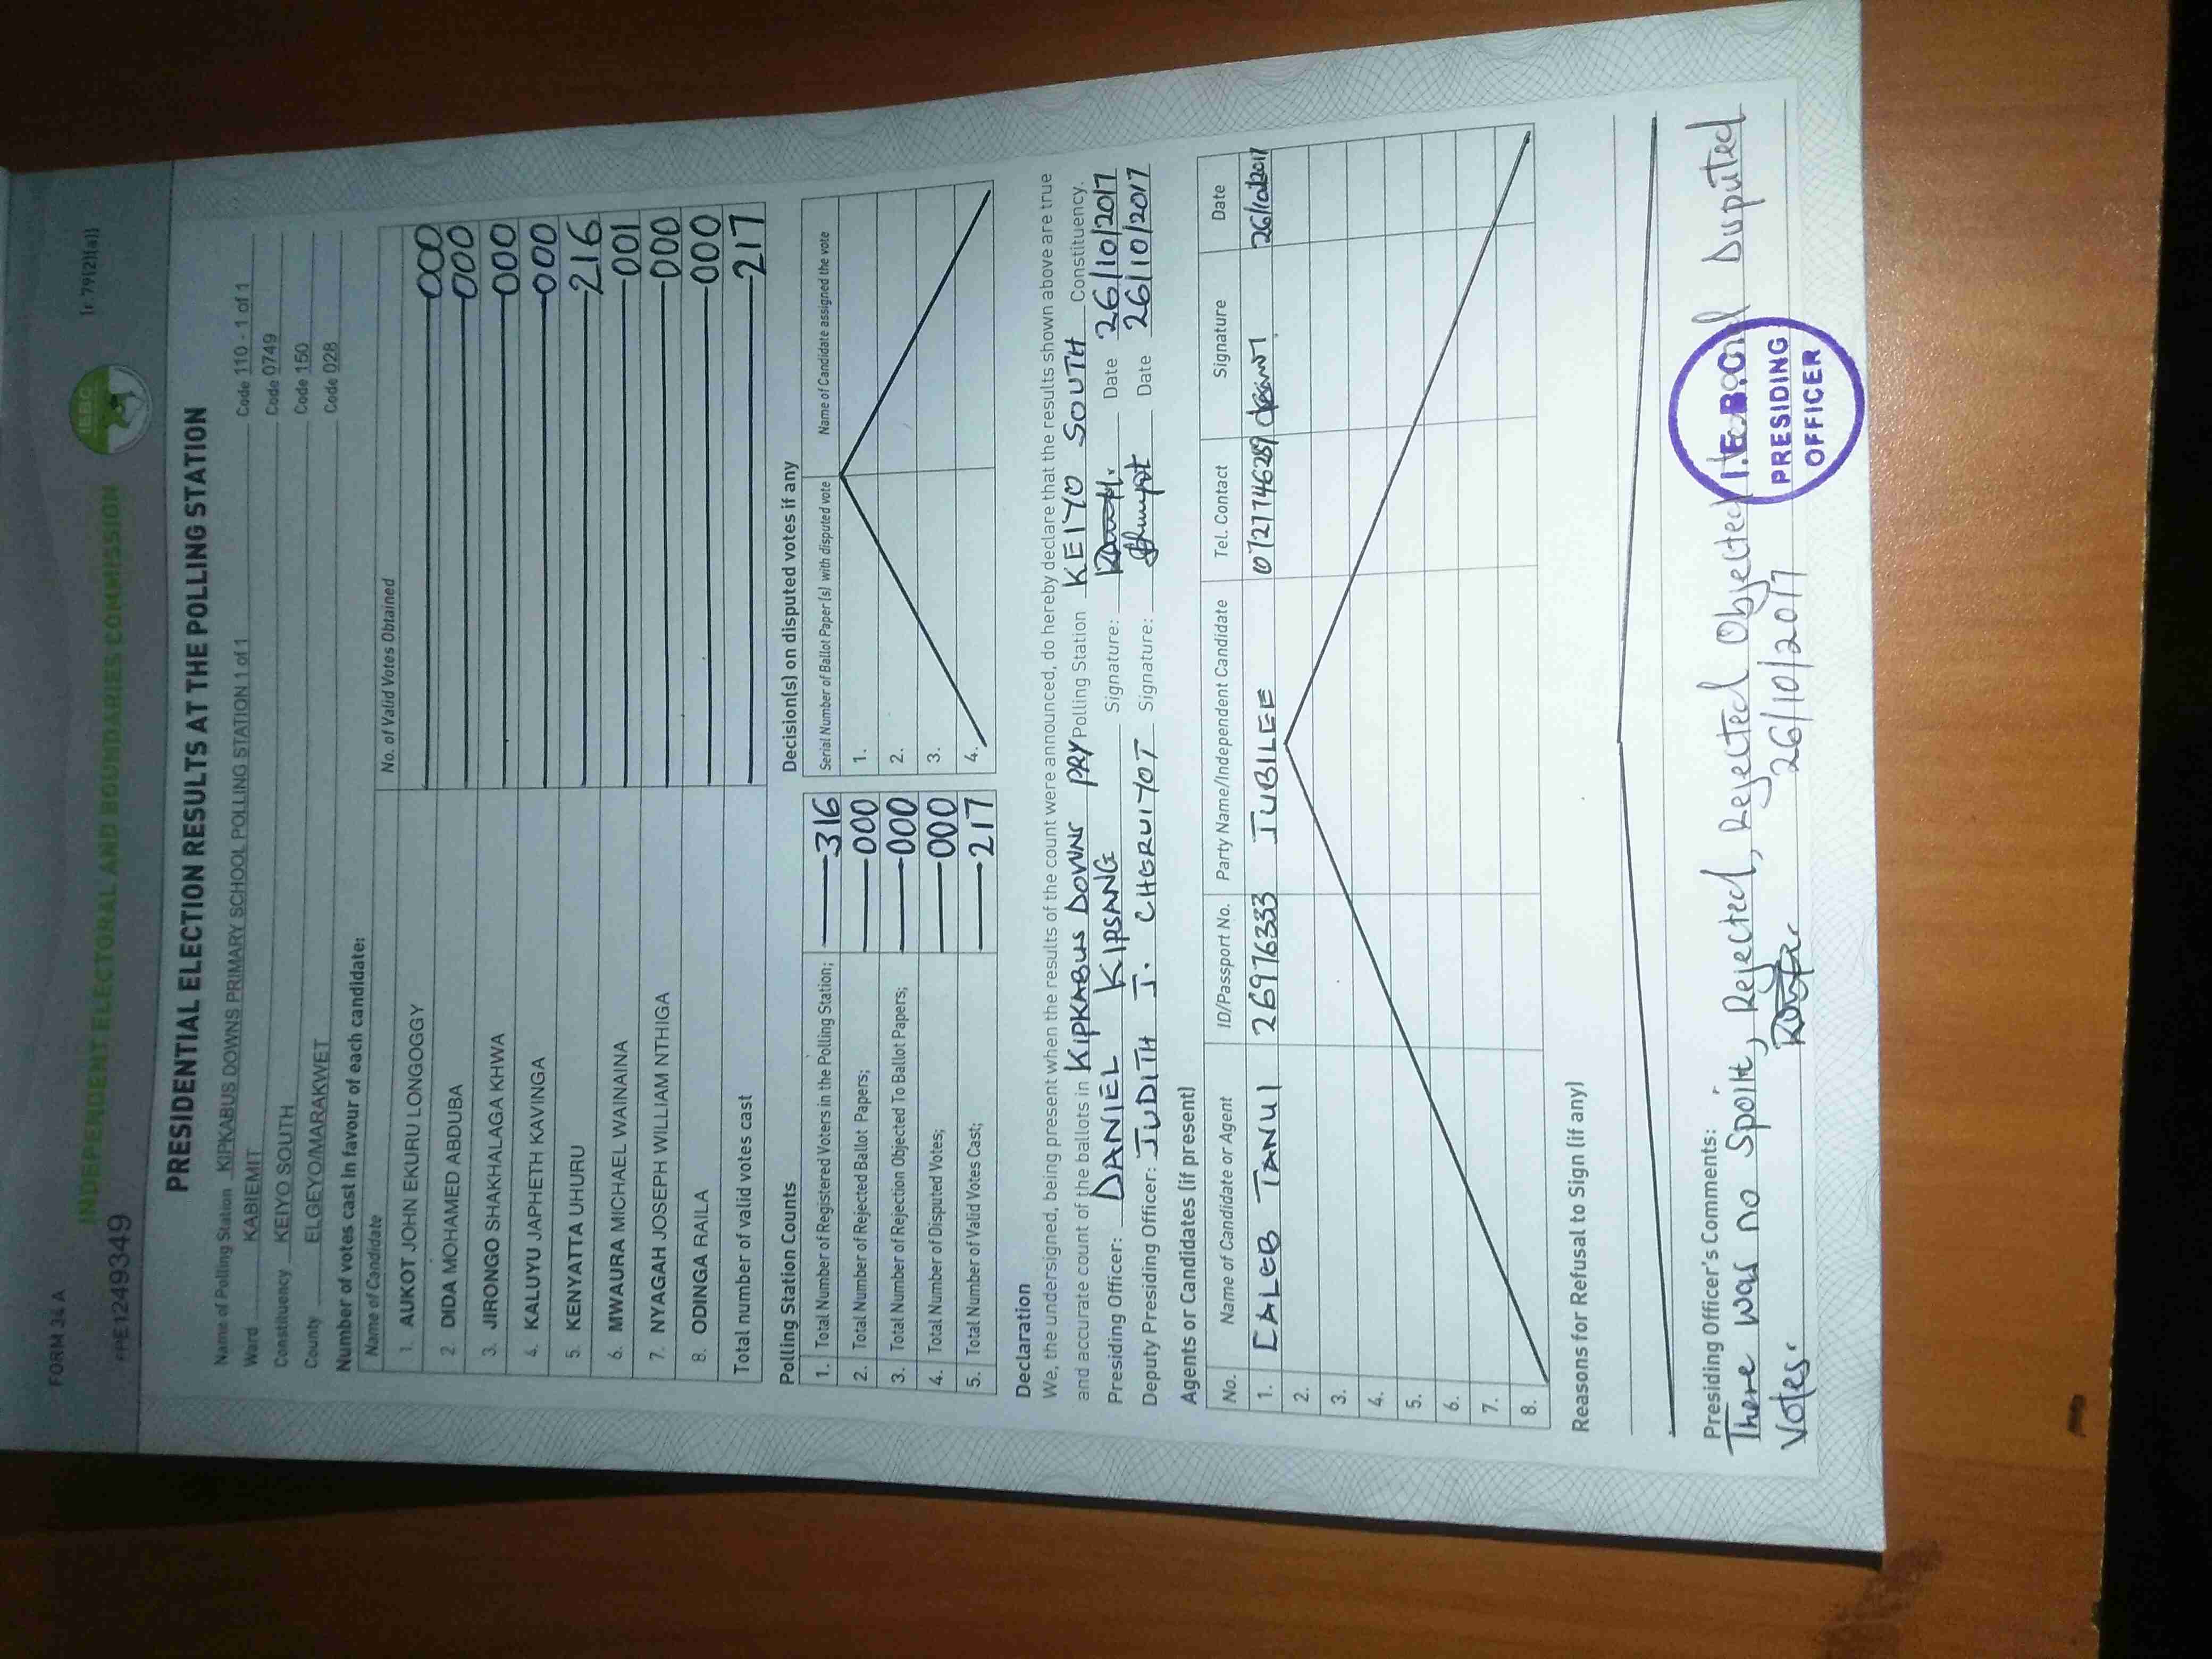 FORM 34 A
[r 79(2)(a)]
IEBC
INDEPENDENT ELECTORAL AND BOUNDARIES COMMISSION
PPE1249349
PRESIDENTIAL ELECTION RESULTS AT THE POLLING STATION
Name of Polling Station KIPKABUS DOWNS PRIMARY SCHOOL POLLING STATION 1 of 1 Code 110 - 1 of 1
Ward KABIEMIT Code 0749
Constituency KEIYO SOUTH Code 150
County ELGEYO/MARAKWET Code 028
Number of votes cast in favour of each candidate:
Name of Candidate No. of Valid Votes Obtained
1. AUKOT JOHN EKURU LONGOGGY 000
2 DIDA MOHAMED ABDUBA 000
3. JIRONGO SHAKHALAGA KHWA 000
4. KALUYU JAPHETH KAVINGA 000
5. KENYATTA UHURU 216
6. MWAURA MICHAEL WAINAINA 001
7. NYAGAH JOSEPH WILLIAM NTHIGA 000
8. ODINGA RAILA 000
Total number of valid votes cast 217
Polling Station Counts
1. Total Number of Registered Voters in the Polling Station; 316
2. Total Number of Rejected Ballot Papers; 000
3. Total Number of Rejection Objected To Ballot Papers; 000
4. Total Number of Disputed Votes; 000
5. Total Number of Valid Votes Cast; 217
Decision(s) on disputed votes if any
Serial Number of Ballot Paper(s) with disputed vote Name of Candidate assigned the vote
1.
2.
3.
4.
Declaration
We, the undersigned, being present when the results of the count were announced, do hereby declare that the results shown above are true
and accurate count of the ballots in KIPKABUS DOWNS PRY Polling Station KEIYO SOUTH Constituency.
Presiding Officer: DANIEL KIPSANG Signature: Date 26/10/2017
Deputy Presiding Officer: JUDITH J. CHERUIYOT Signature: Date 26/10/2017
Agents or Candidates (if present)
No. Name of Candidate or Agent ID/Passport No. Party Name/Independent Candidate Tel. Contact Signature Date
1. CALEB TANUI 26976333 JUBILEE 0727746289 26/10/2017
2.
3.
4.
5.
6.
7.
8.
Reasons for Refusal to Sign (if any)
Presiding Officer's Comments:
There was no Spoilt, Rejected, Rejected Objected and Disputed
Votes. 26/10/2017
I.E.B.C
PRESIDING
OFFICER